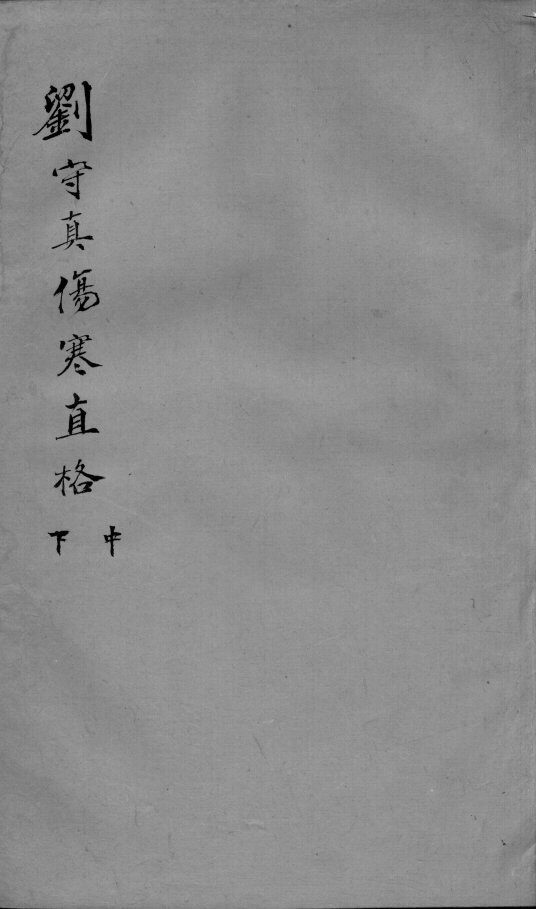 劉守真傷寒直格
中
下